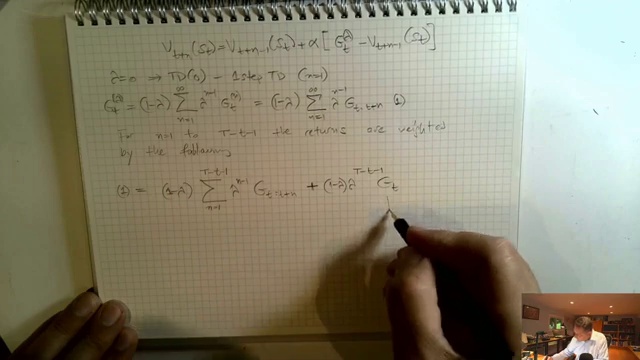 V_{t+n}(S_t) = V_{t+n-1}(S_t) + α [ G_t^λ - V_{t+n-1}(S_t) ]
λ=0 ⇒ TD(0) - 1 step TD (n=1)
G_t^{(λ)} = (1-λ) ∑_{n=1}^{∞} λ^{n-1} G_t^{(n)} = (1-λ) ∑_{n=1}^{∞} λ^{n-1} G_{t:t+n} (1)
For n=1 to T-t-1 the returns are weighted
by the following
(1) = (1-λ) ∑_{n=1}^{T-t-1} λ^{n-1} G_{t:t+n} + (1-λ) λ^{T-t-1} G_t